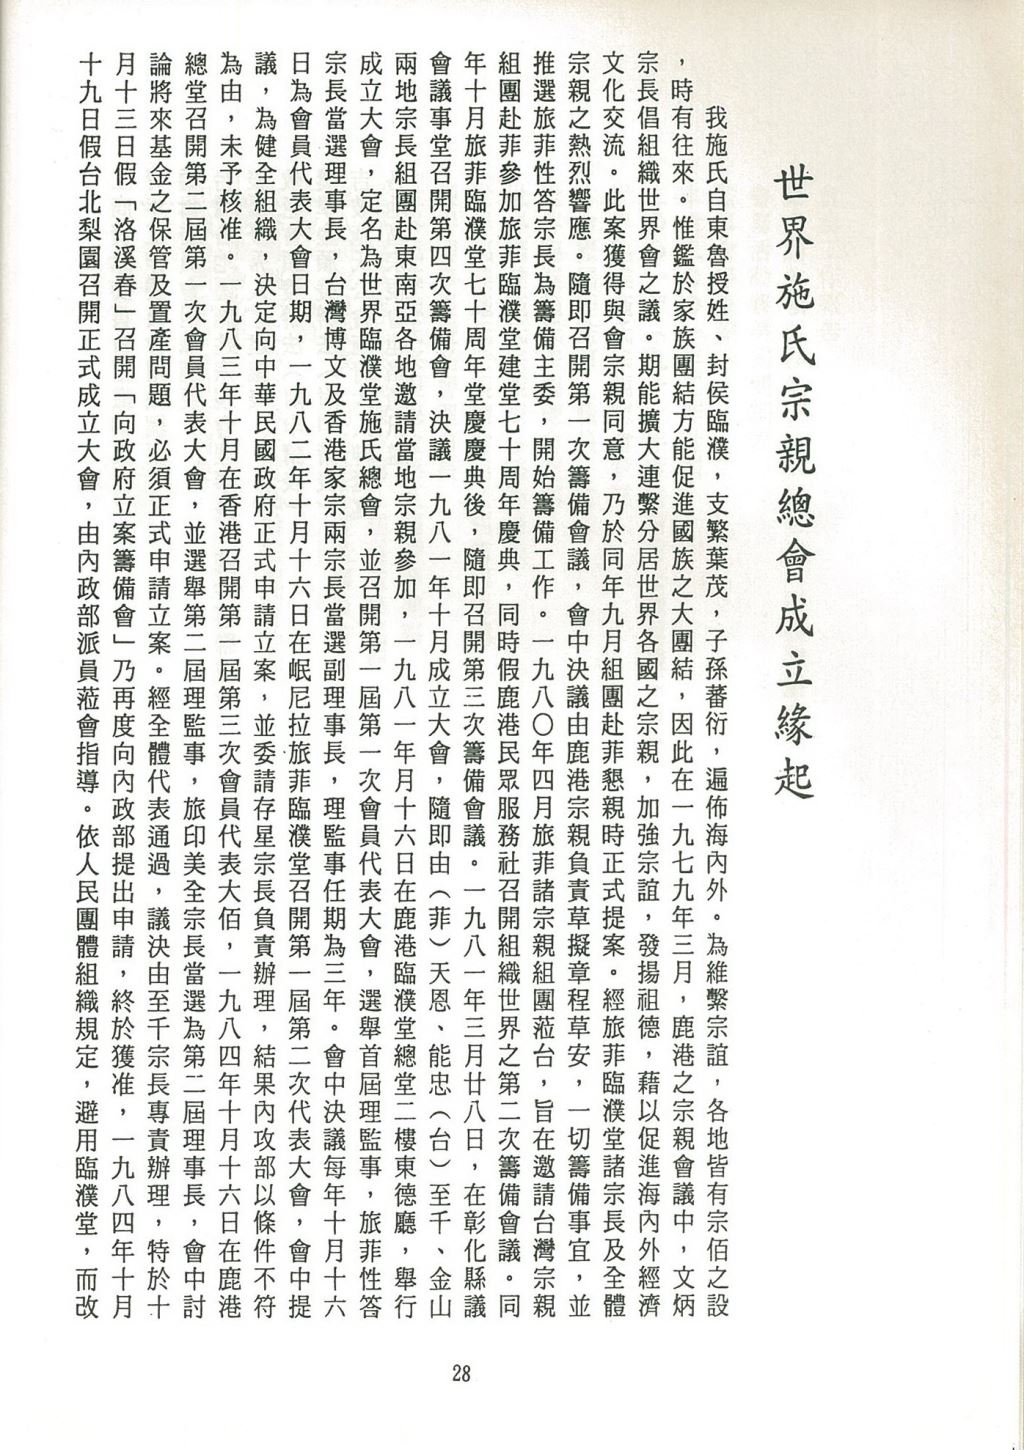 世界施氏宗親總會成立緣起
我施氏自東魯授姓、封侯臨濮，支繁葉茂，子孫蕃衍，遍佈海內外。為維繫宗誼，各地皆有宗佰之設
，時有往來。惟鑑於家族團結方能促進國族之大團結，因此在一九七九年三月，鹿港之宗親會議中，文炳
宗長倡組織世界會之議。期能擴大連繫分居世界各國之宗親，加強宗誼，發揚祖德，藉以促進海內外經濟
文化交流。此案獲得與會宗親同意，乃於同年九月組團赴菲懇親時正式提案。經旅菲臨濮堂諸宗長及全體
宗親之熱烈響應。隨即召開第一次籌備會議，會中決議由鹿港宗親負責草擬章程草安，一切籌備事宜，並
推選旅菲性答宗長為籌備主委，開始籌備工作。一九八〇年四月旅菲諸宗親組團蒞台，旨在邀請台灣宗親
組團赴菲參加旅菲臨濮堂建堂七十周年慶典，同時假鹿港民眾服務社召開組織世界之第二次籌備會議。同
年十月旅菲臨濮堂七十周年堂慶慶典後，隨即召開第三次籌備會議。一九八一年三月廿八日，在彰化縣議
會議事堂召開第四次籌備會，決議一九八一年十月成立大會，隨即由（菲）天恩、能忠（台）至千、金山
兩地宗長組團赴東南亞各地邀請當地宗親參加，一九八一年月十六日在鹿港臨濮堂總堂二樓東德廳，舉行
成立大會，定名為世界臨濮堂施氏總會，並召開第一屆第一次會員代表大會，選舉首屆理監事，旅菲性答
宗長當選理事長，台灣博文及香港家宗兩宗長當選副理事長，理監事任期為三年。會中決議每年十月十六
日為會員代表大會日期，一九八二年十月十六日在岷尼拉旅菲臨濮堂召開第一屆第二次代表大會，會中提
議，為健全組織，決定向中華民國政府正式申請立案，並委請存星宗長負責辦理，結果內攻部以條件不符
為由，未予核准。一九八三年十月在香港召開第一屆第三次會員代表大佰，一九八四年十月十六日在鹿港
總堂召開第二屆第一次會員代表大會，並選舉第二屆理監事，旅印美全宗長當選為第二屆理事長，會中討
論將來基金之保管及置產問題，必須正式申請立案。經全體代表通過，議決由至千宗長專責辦理，特於十
月十三日假「洛溪春」召開「向政府立案籌備會」乃再度向內政部提出申請，終於獲准，一九八四年十月
十九日假台北梨園召開正式成立大會，由內政部派員蒞會指導。依人民團體組織規定，避用臨濮堂，而改
28